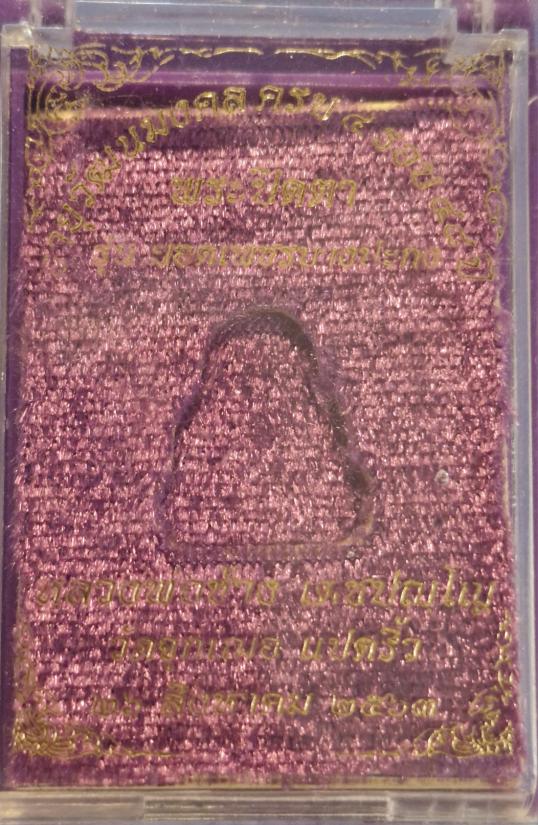 อายุวัฒนมงคล ครบ ๔ รอบ
พระปิดตา
รุ่น ยอดเพชรบางปะกง
หลวงพ่อช้าง เตชปญฺโญ
วัดจุกเฌอ แปดริ้ว
สิงหาคม ๒๕๖๓